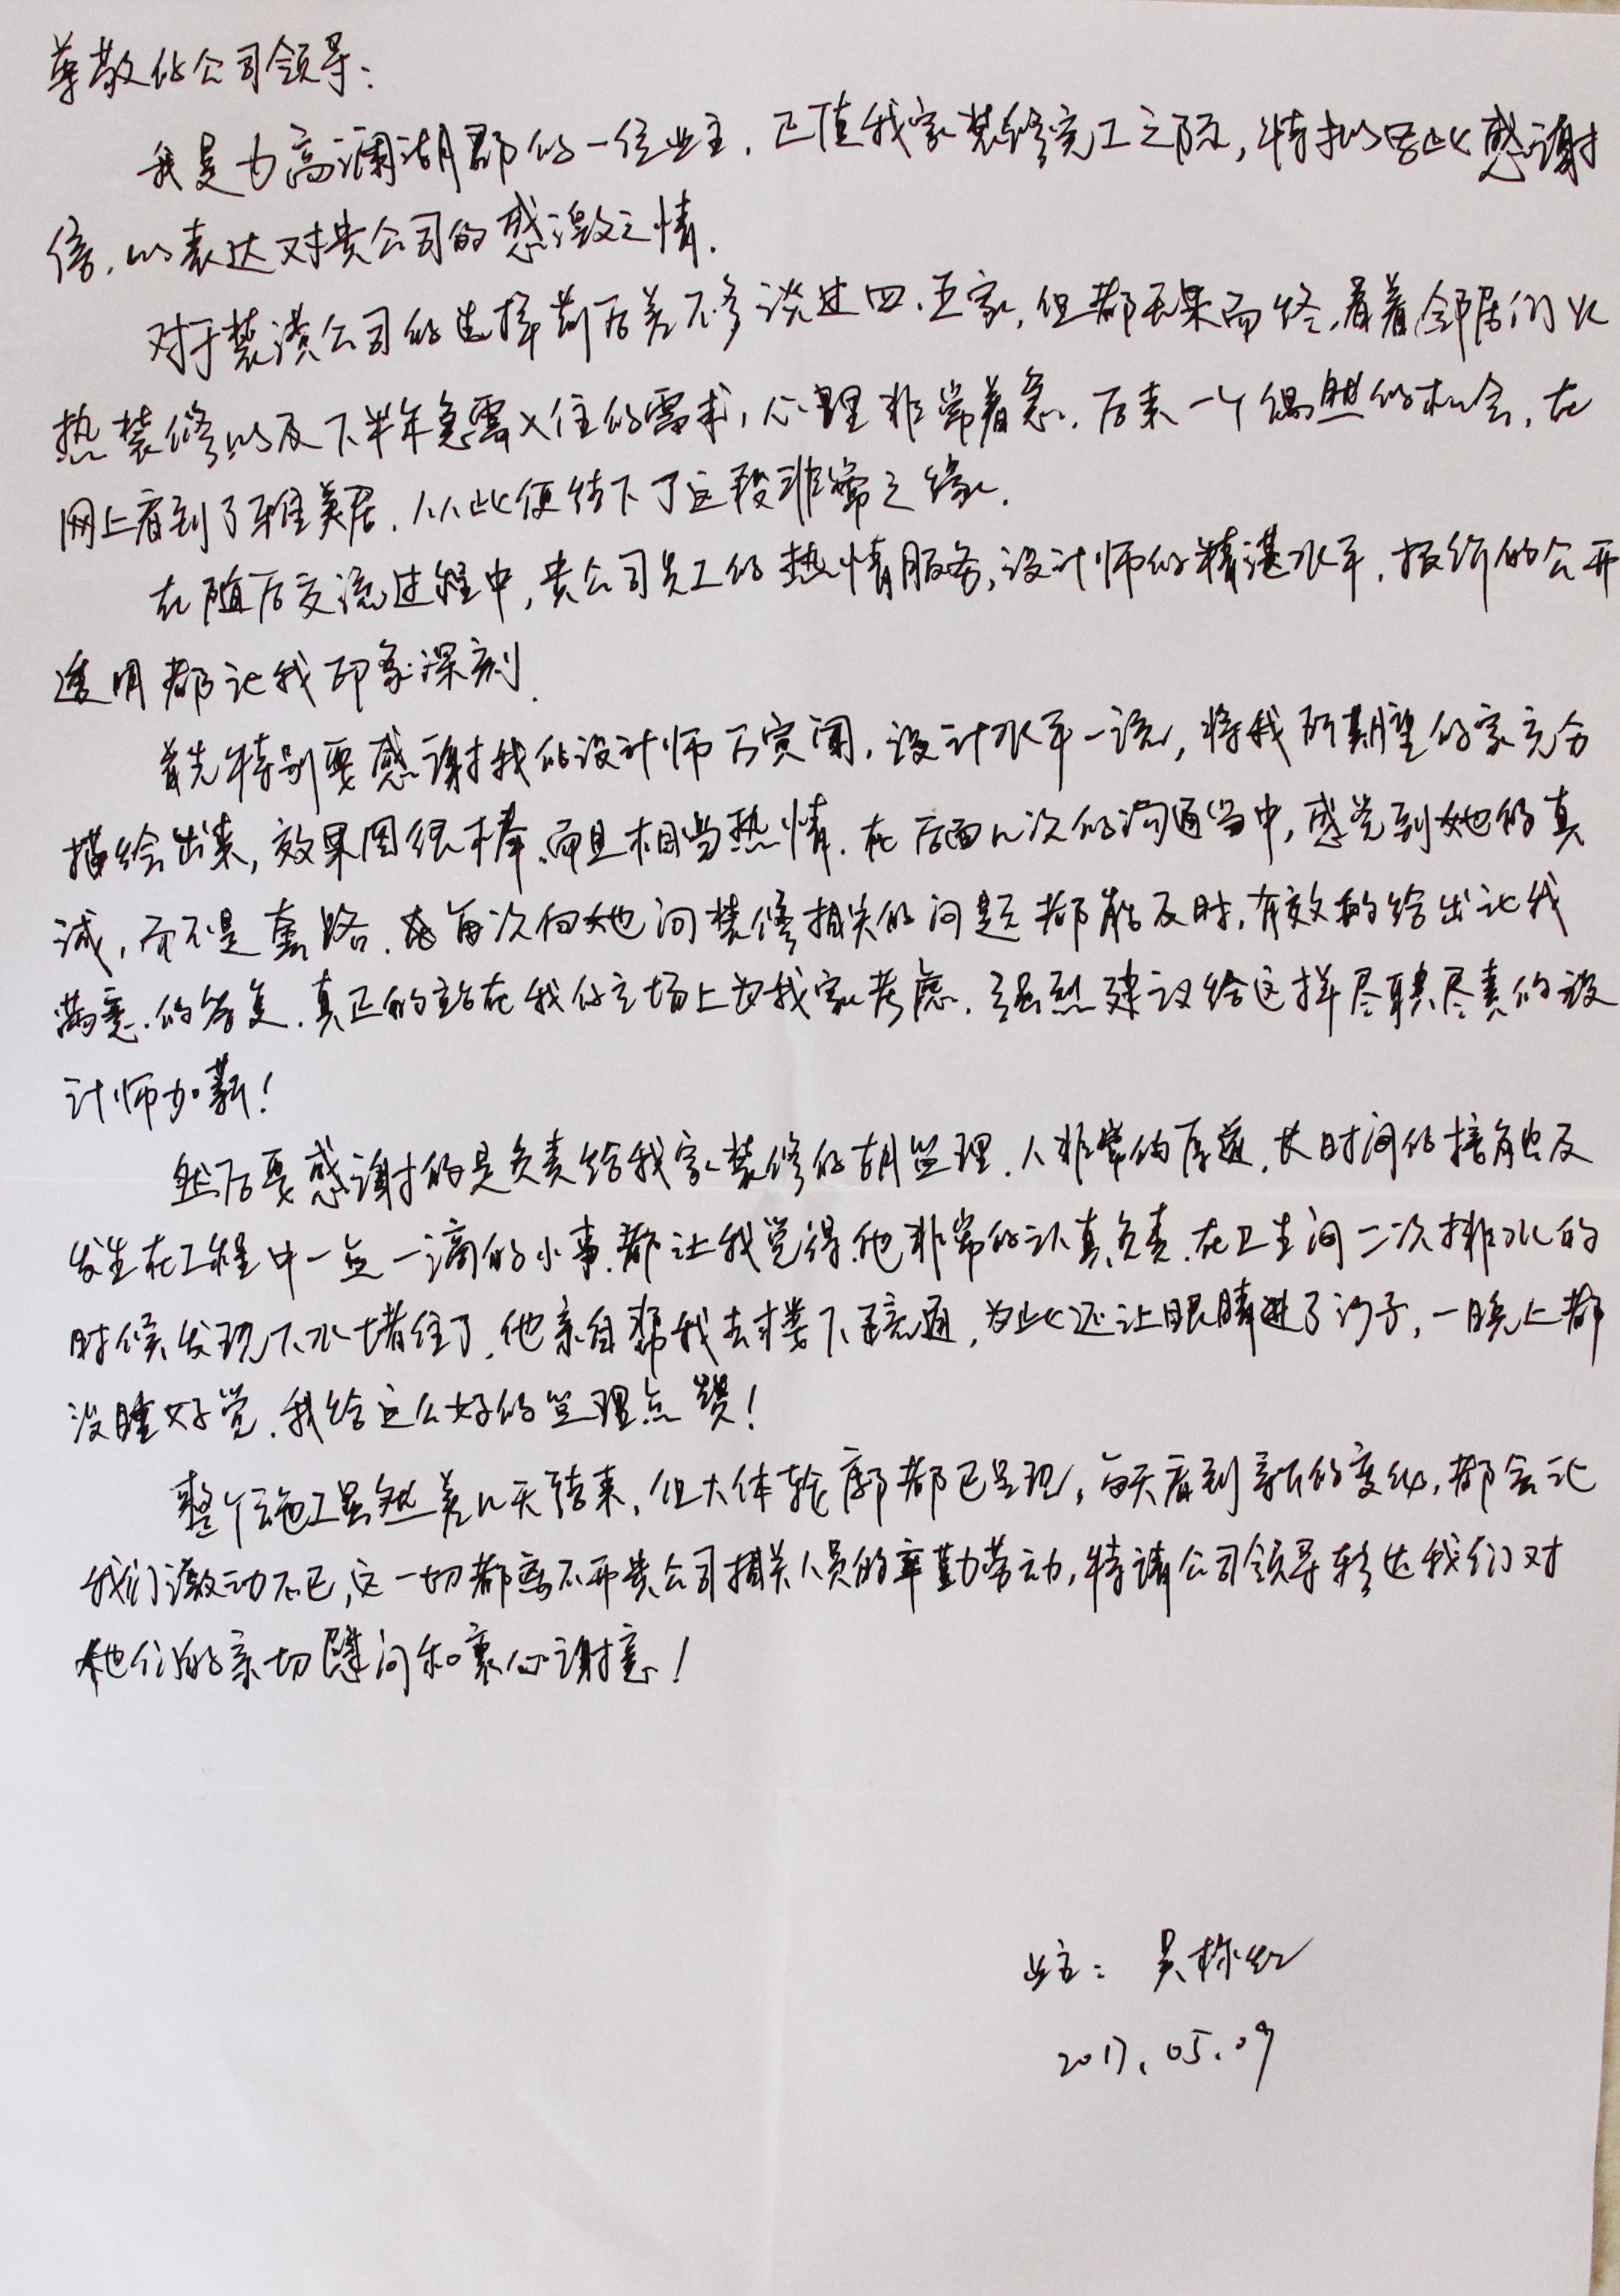 尊敬的公司领导:
我是力高澜湖郡的一位业主,正值我家装修完工之际,特拟写此感谢
信,以表达对贵公司的感激之情.
对于装潢公司的选择前后差不多谈过四、五家,但都无果而终,看着邻居们火
热装修以及下半年急需入住的需求,心理非常着急.后来一个偶然的机会,在
网上看到了雅美居.从此便结下了这段非常之缘.
在随后交流过程中,贵公司员工的热情服务,设计师的精湛水平,报价的公开
透明都让我印象深刻.
首先特别要感谢我的设计师,设计水平一流,将我所期望的家充分
描绘出来,效果图很棒.而且相当热情.在后面几次的沟通当中,感觉到她的真
诚,而不是套路.每次向她问装修相关的问题都能及时,有效的给出让我
满意.的答复.真正的站在我的立场上为我家考虑.强烈建议给这样尽职尽责的设
计师加薪!
然后要感谢的是负责给我家装修的胡监理.人非常的厚道,长时间的接触及
发生在工程中一点一滴的小事.都让我觉得.他非常的认真负责.在卫生间二次排水的
时候发现下水堵住了.他亲自帮我去楼下疏通,为此还让眼睛进了沙子,一晚上都
没睡好觉.我给这么好的监理点赞!
整个施工虽然差几天结束,但大体轮廓都已呈现,每天看到新的变化,都会让
我们激动不已,这一切都离不开贵公司相关人员的辛勤劳动,特请公司领导转达我们对
他们的亲切慰问和衷心谢意!
业主:吴
2017.05.09